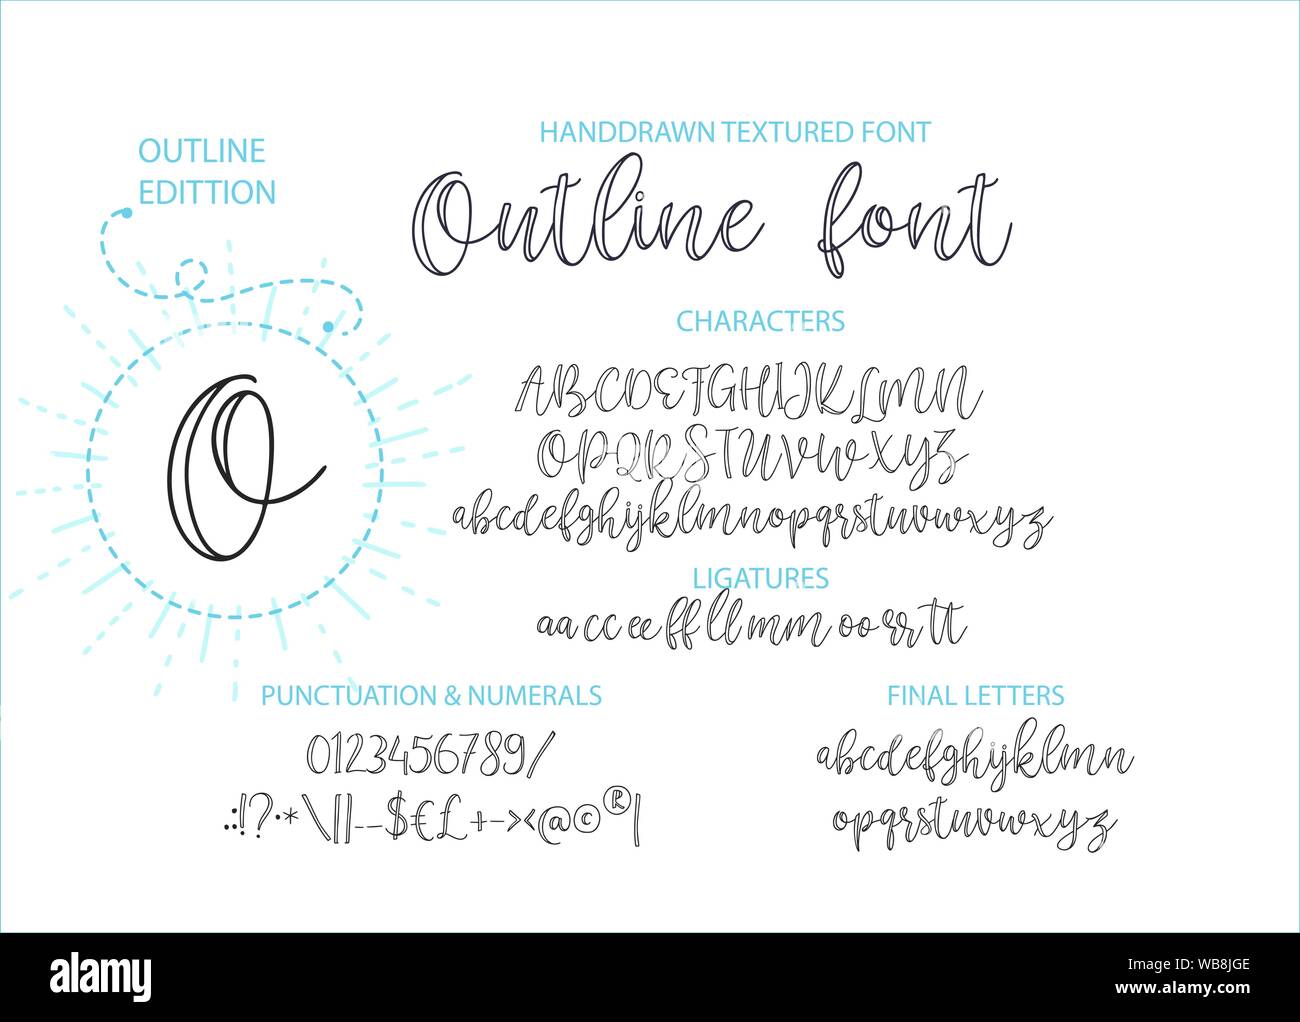 OUTLINE
EDITTION
HANDDRAWN TEXTURED FONT
Outline font
O
CHARACTERS
ABCDEFGHIJKLMN
OPQRSTUVWXYZ
abcdefghijklmnopqrstuvwxyz
LIGATURES
aa cc ee ff ll mm oo rr tt
PUNCTUATION & NUMERALS
0123456789/
.:;!?·*\||--$€£+-><@©®|
FINAL LETTERS
abcdefghijklmn
opqrstuvwxyz
alamy
Image ID: WB8JGE
www.alamy.com